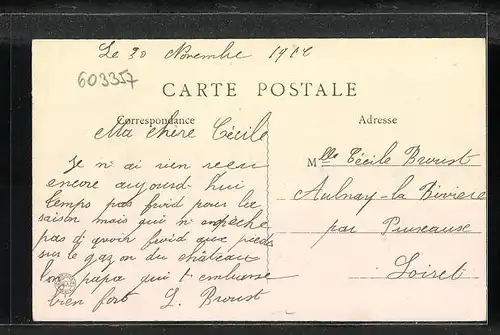 Le 30 Novembre 191
603357
CARTE POSTALE
Correspondance
Adresse
Ma chère Cécile
Je n'ai rien recu
encore aujourd'hui
temps pas froid pour la
saison mais qui n'empèche
pas d'avoir froid aux pieds
sur le gazon du château
ton papa qui t'embrasse
bien fort L. Broust
Mlle Cécile Broust
Aulnay-la Rivière
par Puiseaux
Loiret